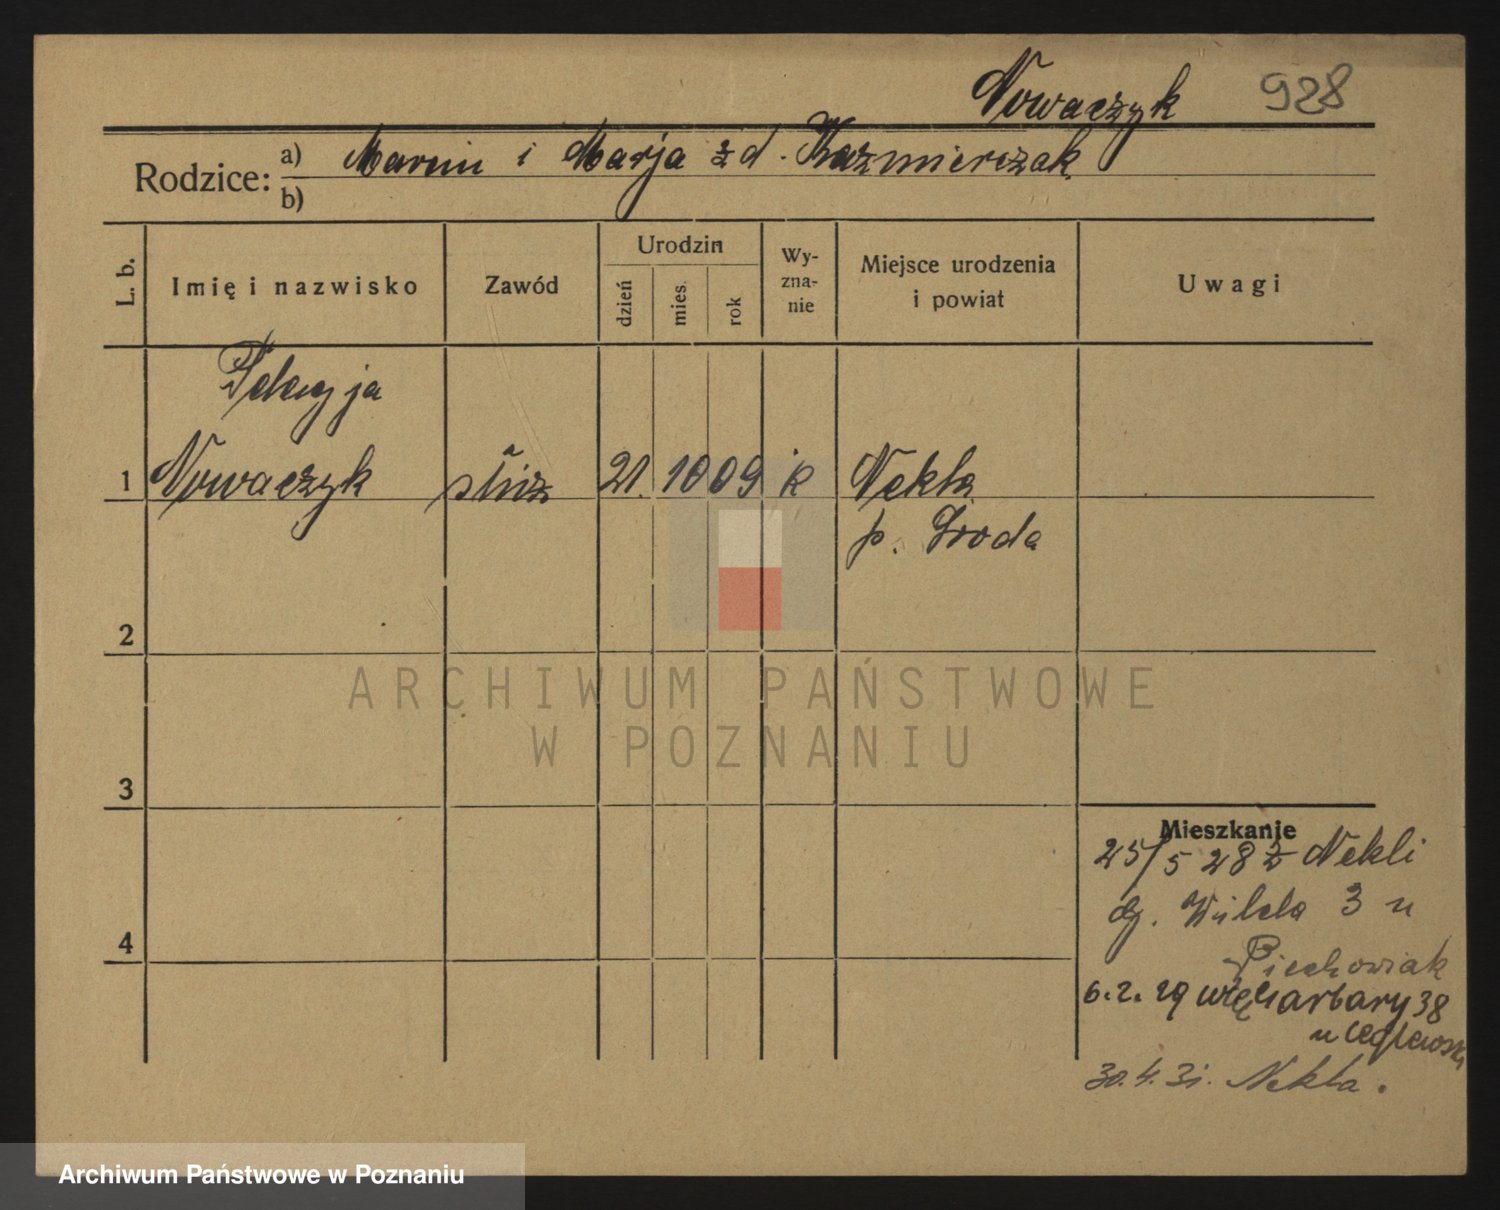 Nowaczyk 928
Rodzice: a) Marcin i Marja z d. Kaźmierczak
b)
L. b. Imię i nazwisko Zawód Urodzin dzień mies. rok Wy-zna-nie Miejsce urodzenia i powiat Uwagi
Pelagja
1 Nowaczyk służ 21. 10 09 k Nekla
p. Środa
2
ARCHIWUM PAŃSTWOWE
W POZNANIU
3
Mieszkanie
25/5 28 z Nekli
dg. Wilda 3 u
4
Piechowiak
6.2.29 Garbary 38
u Ceglewski
30.4.31. Nekla.
Archiwum Państwowe w Poznaniu